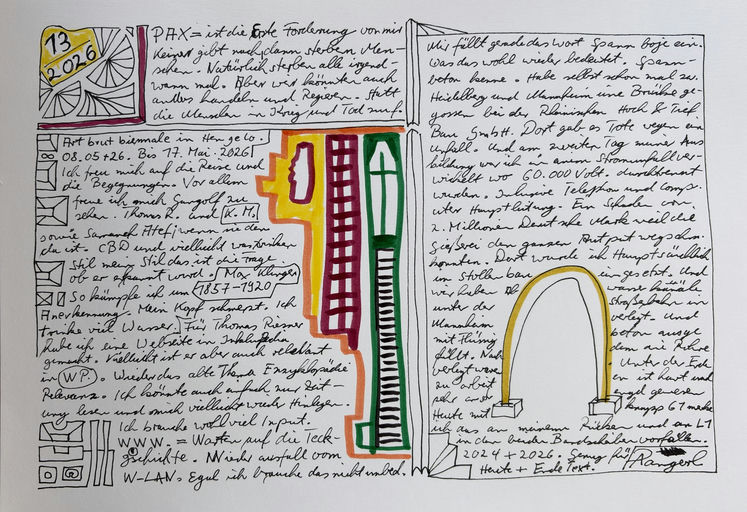 13
2026
PAX = ist die Erste Forderung von mir
Keiner gibt nach, dann sterben Men-
schen. Natürlich sterben alle irgend-
wann mal. Aber wir könnten auch
anders handeln und Regieren. Statt
die Menschen in Krieg und Tod
Art brut biennale in Hengelo.
08.05+26. Bis 17. Mai 2026
Ich freu mich auf die Reise und
die Begegnungen. Vor allem
freue ich mich Gangolf zu
sehen. Thomas R. und K. M.
sowie Samaneh Atef; wenn sie denn
da ist. CBD und vielleicht
Stil mein Stil das ist die Frage
ob er erkannt wird. Max Klinger
1857-1920
So kämpfe ich um
Anerkennung. Mein Kopf schmerzt. Ich
trinke viel Wasser. Für Thomas Riesner
habe ich eine Webseite in
gemacht. Vielleicht ist er aber auch relevant
in WP. Wieder das alte Thema Enzyklopädie
Relevanz. Ich könnte auch einfach nur Zeit-
ung lesen und mich vielleicht wieder Hinlegen.
Ich brauche wohl viel Input.
WWW. = Warten auf die Teck-
gschichte. Wieder ausfall vom
W-LAN. Egal ich brauche das nicht unbed.
Mir fällt gerade das Wort Spann boje ein.
Was das wohl wieder bedeutet. Spann-
beton kenne. Habe selbst schon mal zw.
Heidelberg und Mannheim eine Brücke ge-
gossen bei der Rheinischen Hoch & Tief
Bau GmbH. Dort gab es Tote wegen ein
Unfall. Und am zweiten Tag meiner Aus
bildung war ich in einem Stromunfall ver-
wickelt wo 60.000 Volt durchtrennt
wurden. Inklusive Telephon und Comp.
uter Hauptleitung. Ein Schaden von
2. Millionen Deutsche Mark weil die
Gießerei den ganzen
konnten. Dort wurde ich Hauptsächlich
im Stollen bau eingesetzt. Und
wir haben Ab wasser kanäle
unter der Straßenbahn in
Mannheim verlegt. Und
mit Flüssig beton ausge
füllt. Nach dem die Rohre
verlegt waren. Unter der Erde
zu arbeit en ist hart und
sehr anst rengend gewesen
Heute mit knapp 61 merke
ich das an meinem Rücken und an L1
in den beiden Bandscheiben vorfällen.
2024 + 2026. Genug für
Heute + Ende Text.